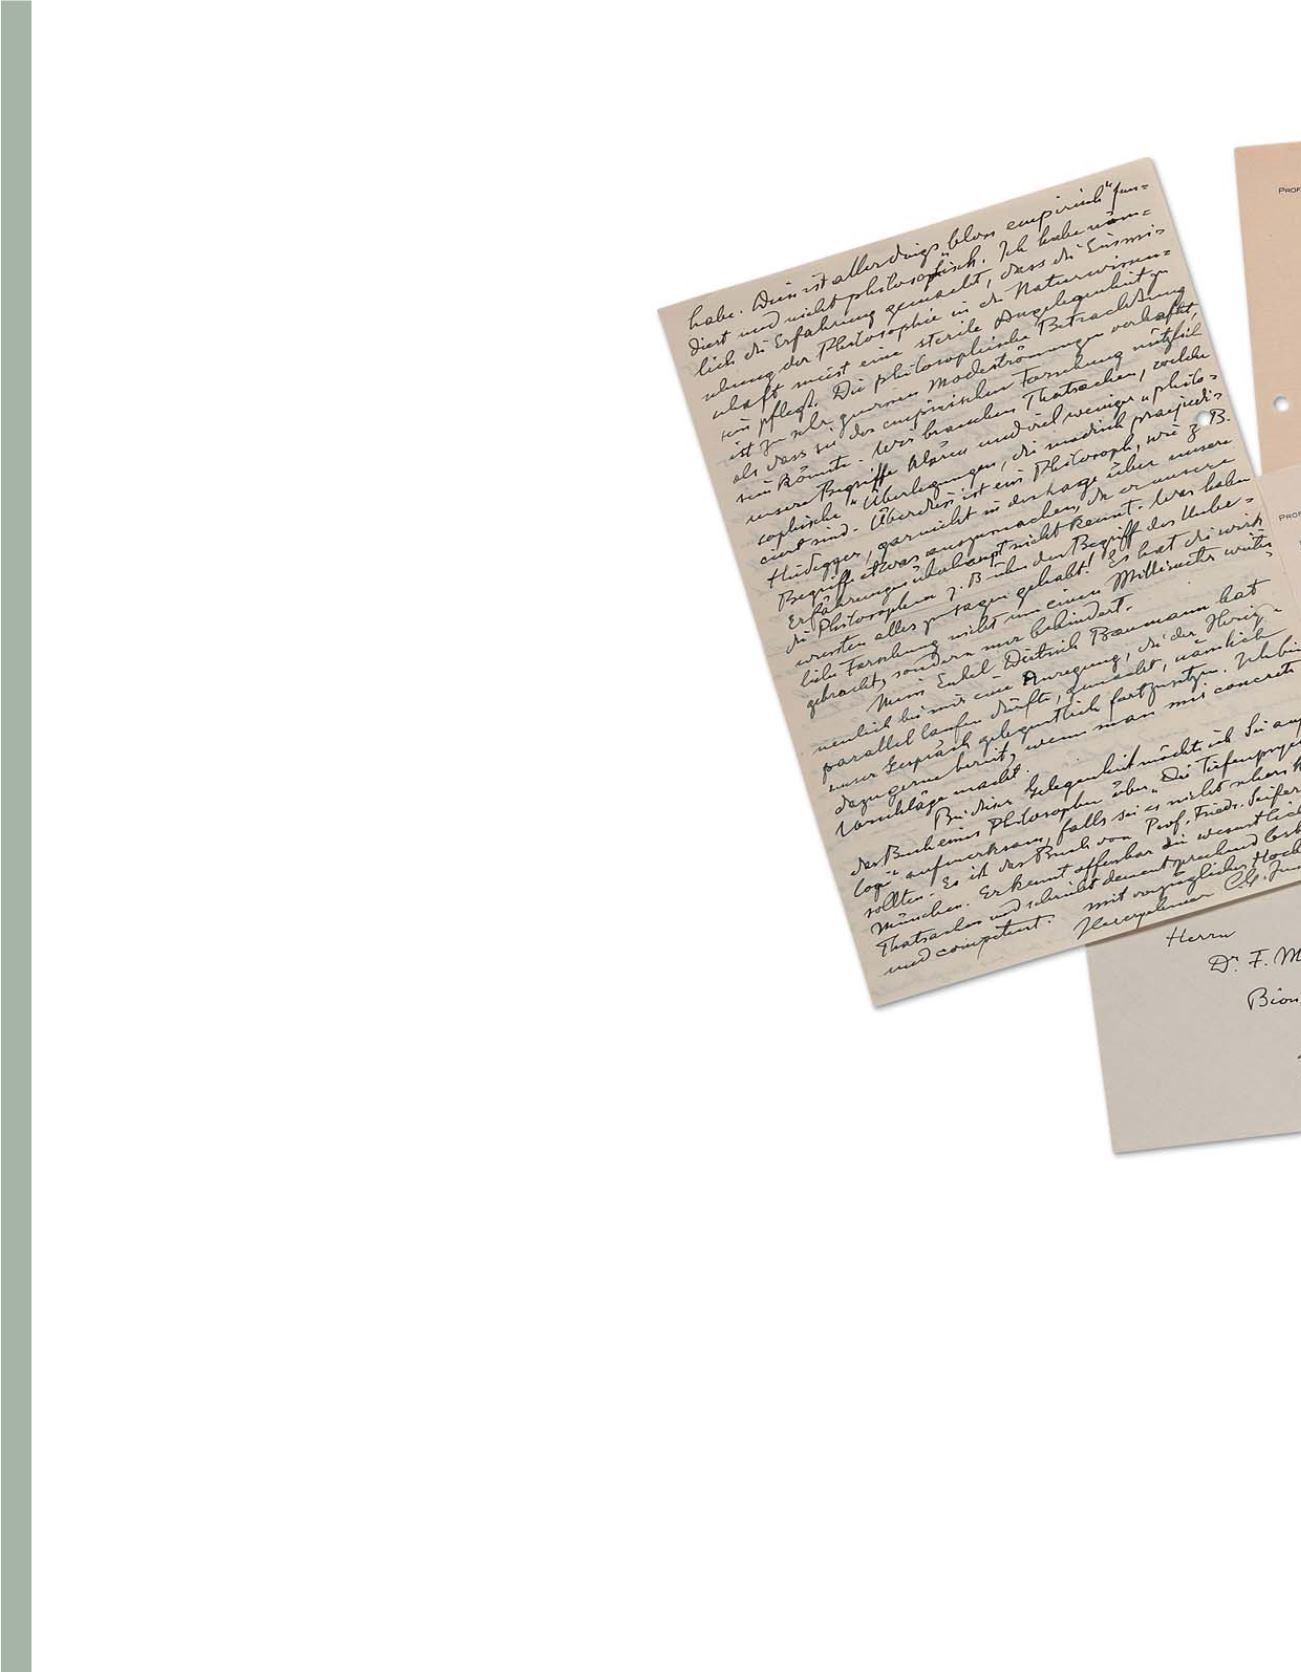 habe. Dies ist allerdings "blos empirisch" fun=
diert und nicht philosophisch. Ich habe näm=
lich die Erfahrung gemacht, dass die Einmi=
schung der Philosophie in die Naturwissen=
schaft meist eine sterile Angelegenheit zu
sein pflegt. Die philosophische Betrachtung
ist zu sehr gewissen Modeströmungen verhaftet,
als dass sie der empirischen Forschung nützlich
sein könnte. Wir brauchen Thatsachen, welche
unsere Begriffe klären und viel weniger "philo=
sophische" Überlegungen, die modisch praejudi=
ciert sind. Überdies ist ein Philosoph, wie z. B.
Heidegger, garnicht in der Lage über unsere
Begriffe etwas auszumachen, da er unsere
Erfahrungen überhaupt nicht kennt. Was haben
die Philosophen z. B. über den Begriff des Unbe=
wussten alles zu sagen gehabt! Es hat die wirk
liche Forschung nicht um einen Millimeter weiter
gebracht, sondern nur behindert.
Mein Enkel Dietrich Baumann hat
neulich bei mir eine Anregung, die der Ihrig=
parallel laufen dürfte, gemacht, nämlich
unser Gespräch gelegentlich fortzusetzen. Ich bin
dazu gerne bereit, wenn man mir concrete
Vorschläge macht.
Bei dieser Gelegenheit möchte ich Sie auf
das Buch eines Philosophen über "Die Tiefenpsycho
logie" aufmerksam, falls sie es nicht schon k
sollten. Es ist das Buch von Prof. Friedr. Seifer
München. Er kennt offenbar die wesentlich
Thatsachen und schreibt dementsprechend
und competent. mit vorzüglicher Hoch
Ihr ergebener C.G. Jun
PROF
PROF
Herrn
Dr. F. M
Bion